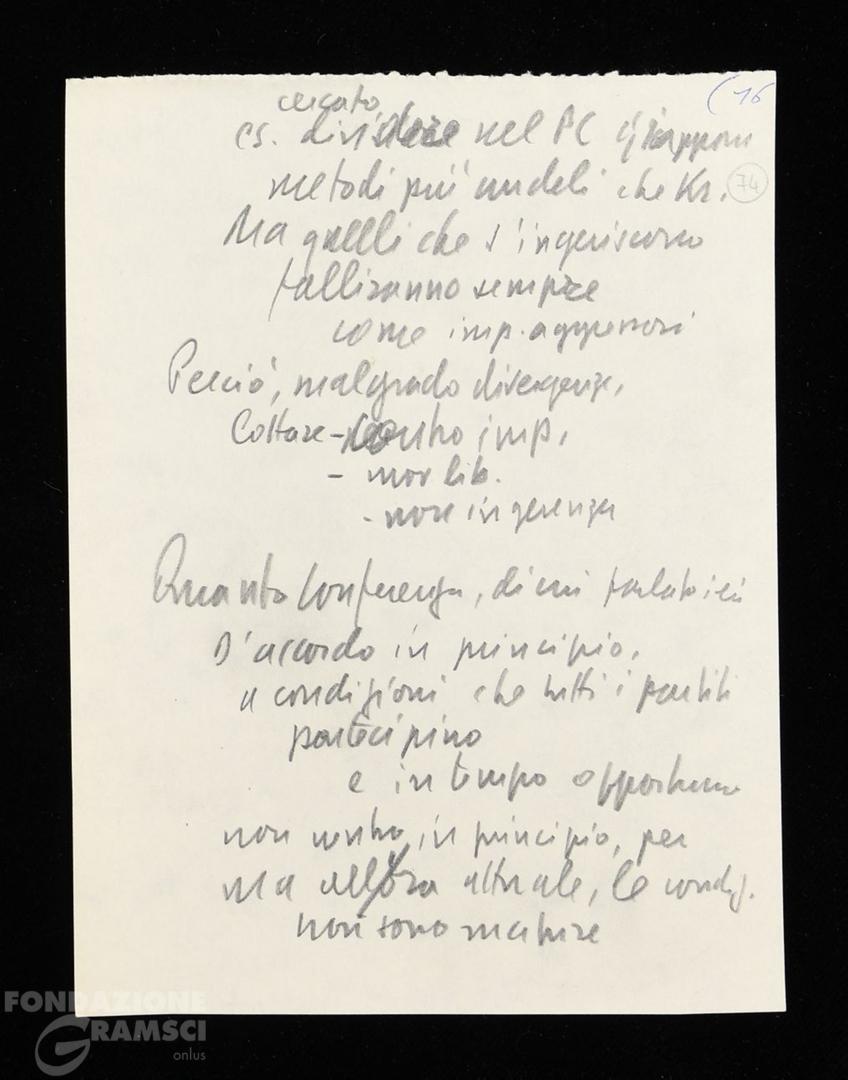 (16
cercato
es. dividere nel PC giappon
metodi più crudeli che Kr.
74
Ma quelli che s'ingeriscono
falliranno sempre
come imp. aggressori
Perciò, malgrado divergenze,
Lottare - contro imp.
- mov lib.
- non ingerenza
Quanto Conferenza, di cui parlato ieri
D'accordo in principio,
a condizioni che tutti i partiti
partecipino
e in tempo opportuno
non contro, in principio, per
Ma all'ora attuale, le condiz.
non sono mature
FONDAZIONE
GRAMSCI
onlus